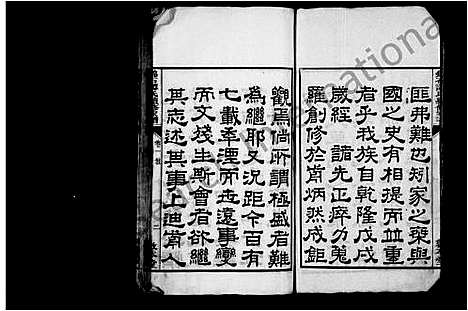 匪弗難也矧家之乘與
國之史有相提而並重
者乎我族自乾隆戊戌
歲經 諸先正瘁力蒐
羅創修於前炳然成鉅
觀焉尚所謂極盛者難
為繼耶又況距今百有
七載歷湮而世遠事變
而文殘生斯會者欲繼
其志述其事上迪前人
卷一